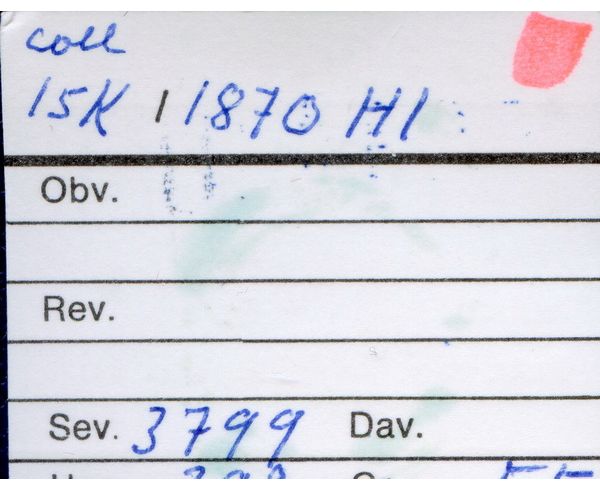 coll
15K 1 1870 HI
Obv.
Rev.
Sev. 3799 Dav.